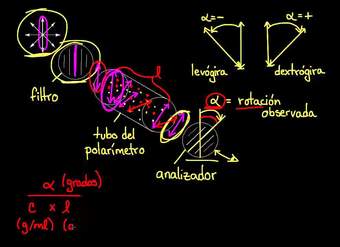 α = -
α = +
levógira
dextrógira
l
filtro
α = rotación
observada
tubo del
polarímetro
analizador
α (grados)
c x l
(g/ml) (